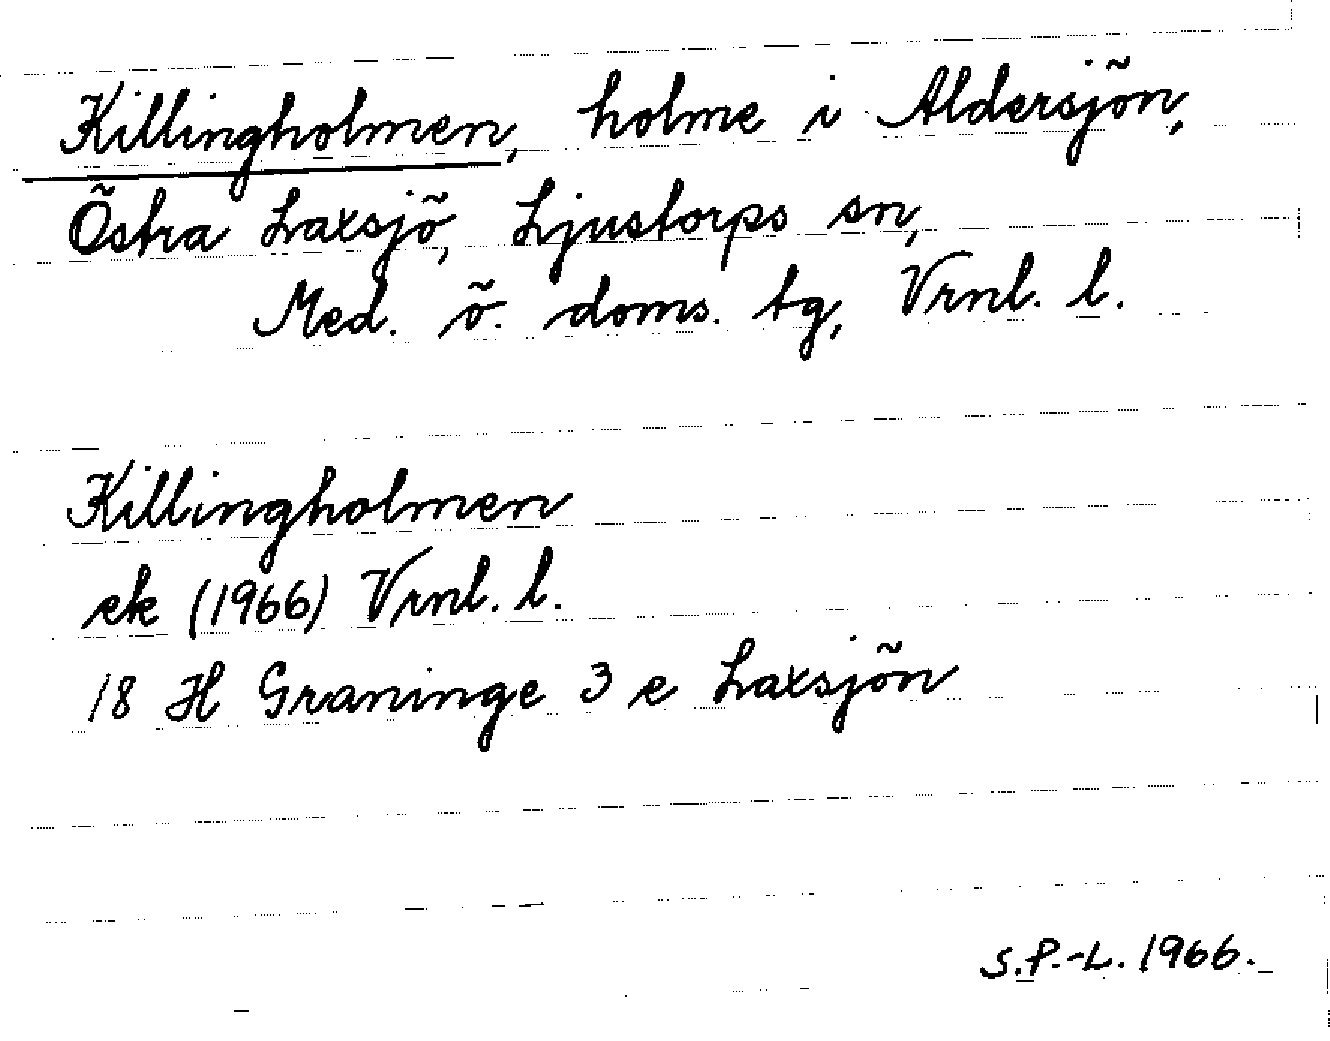 Killingholmen, holme i Aldersjön,
Östra Laxsjö, Ljustorps sn,
Med. ö. doms. tg, Vrnl. l.
Killingholmen
ek (1966) Vrnl. l.
18 H Graninge 3 e Laxsjön
S.P.-L. 1966.